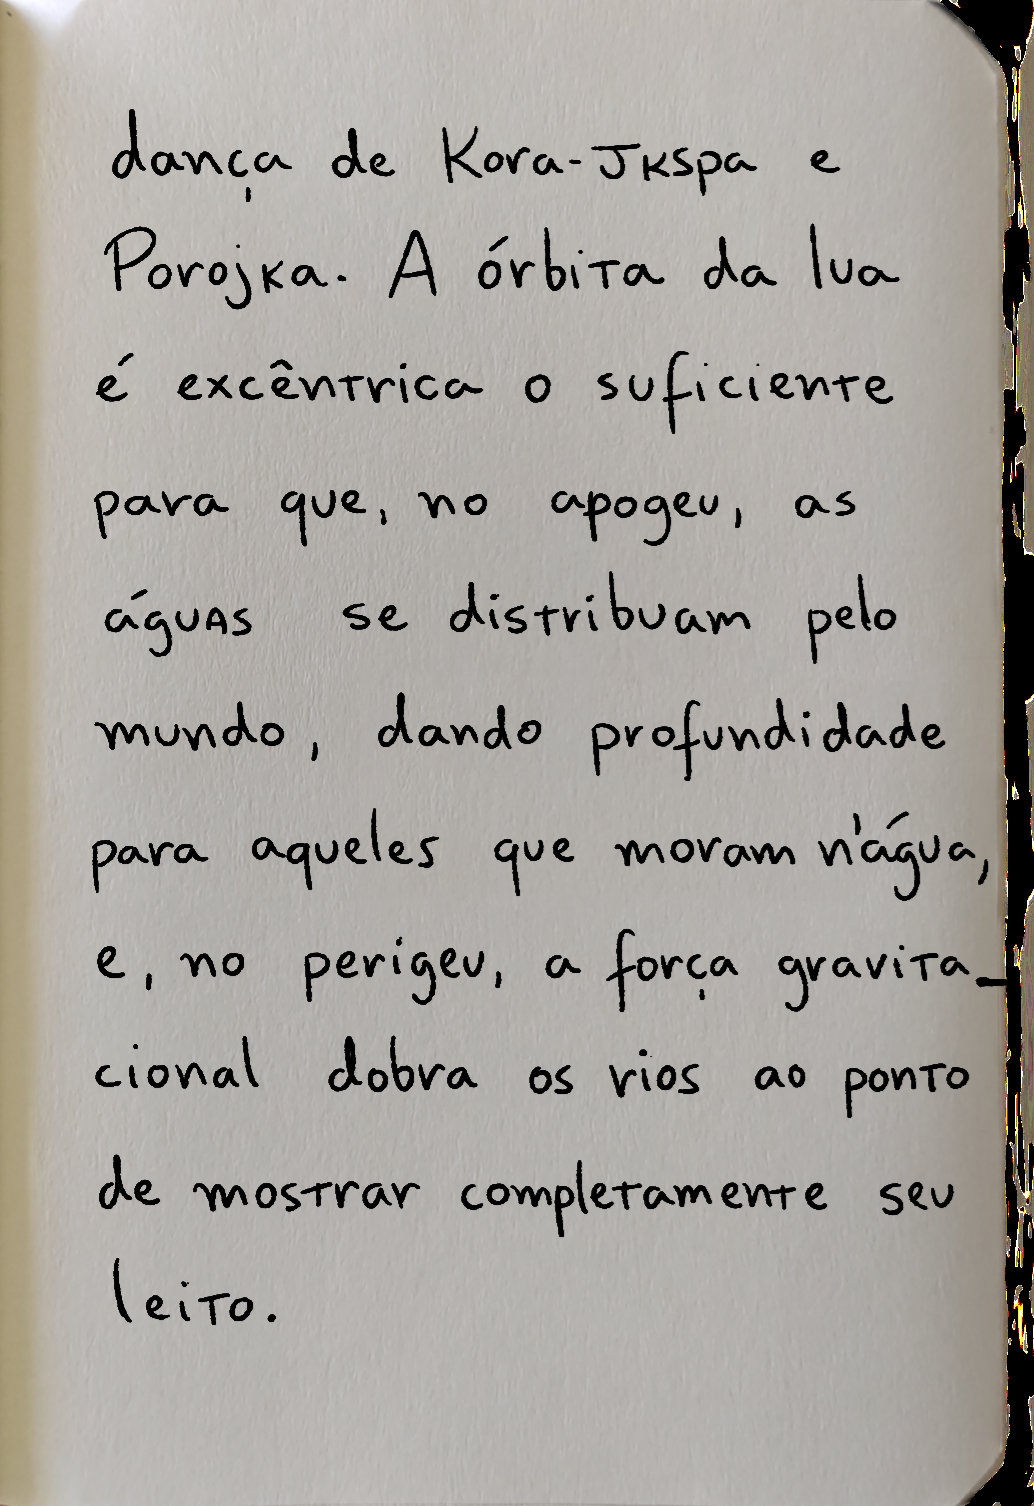 dança de Kora-Jkspa e
Porojka. A órbita da lua
é excêntrica o suficiente
para que, no apogeu, as
águas se distribuam pelo
mundo, dando profundidade
para aqueles que moram n'água,
e, no perigeu, a força gravita-
cional dobra os rios ao ponto
de mostrar completamente seu
leito.